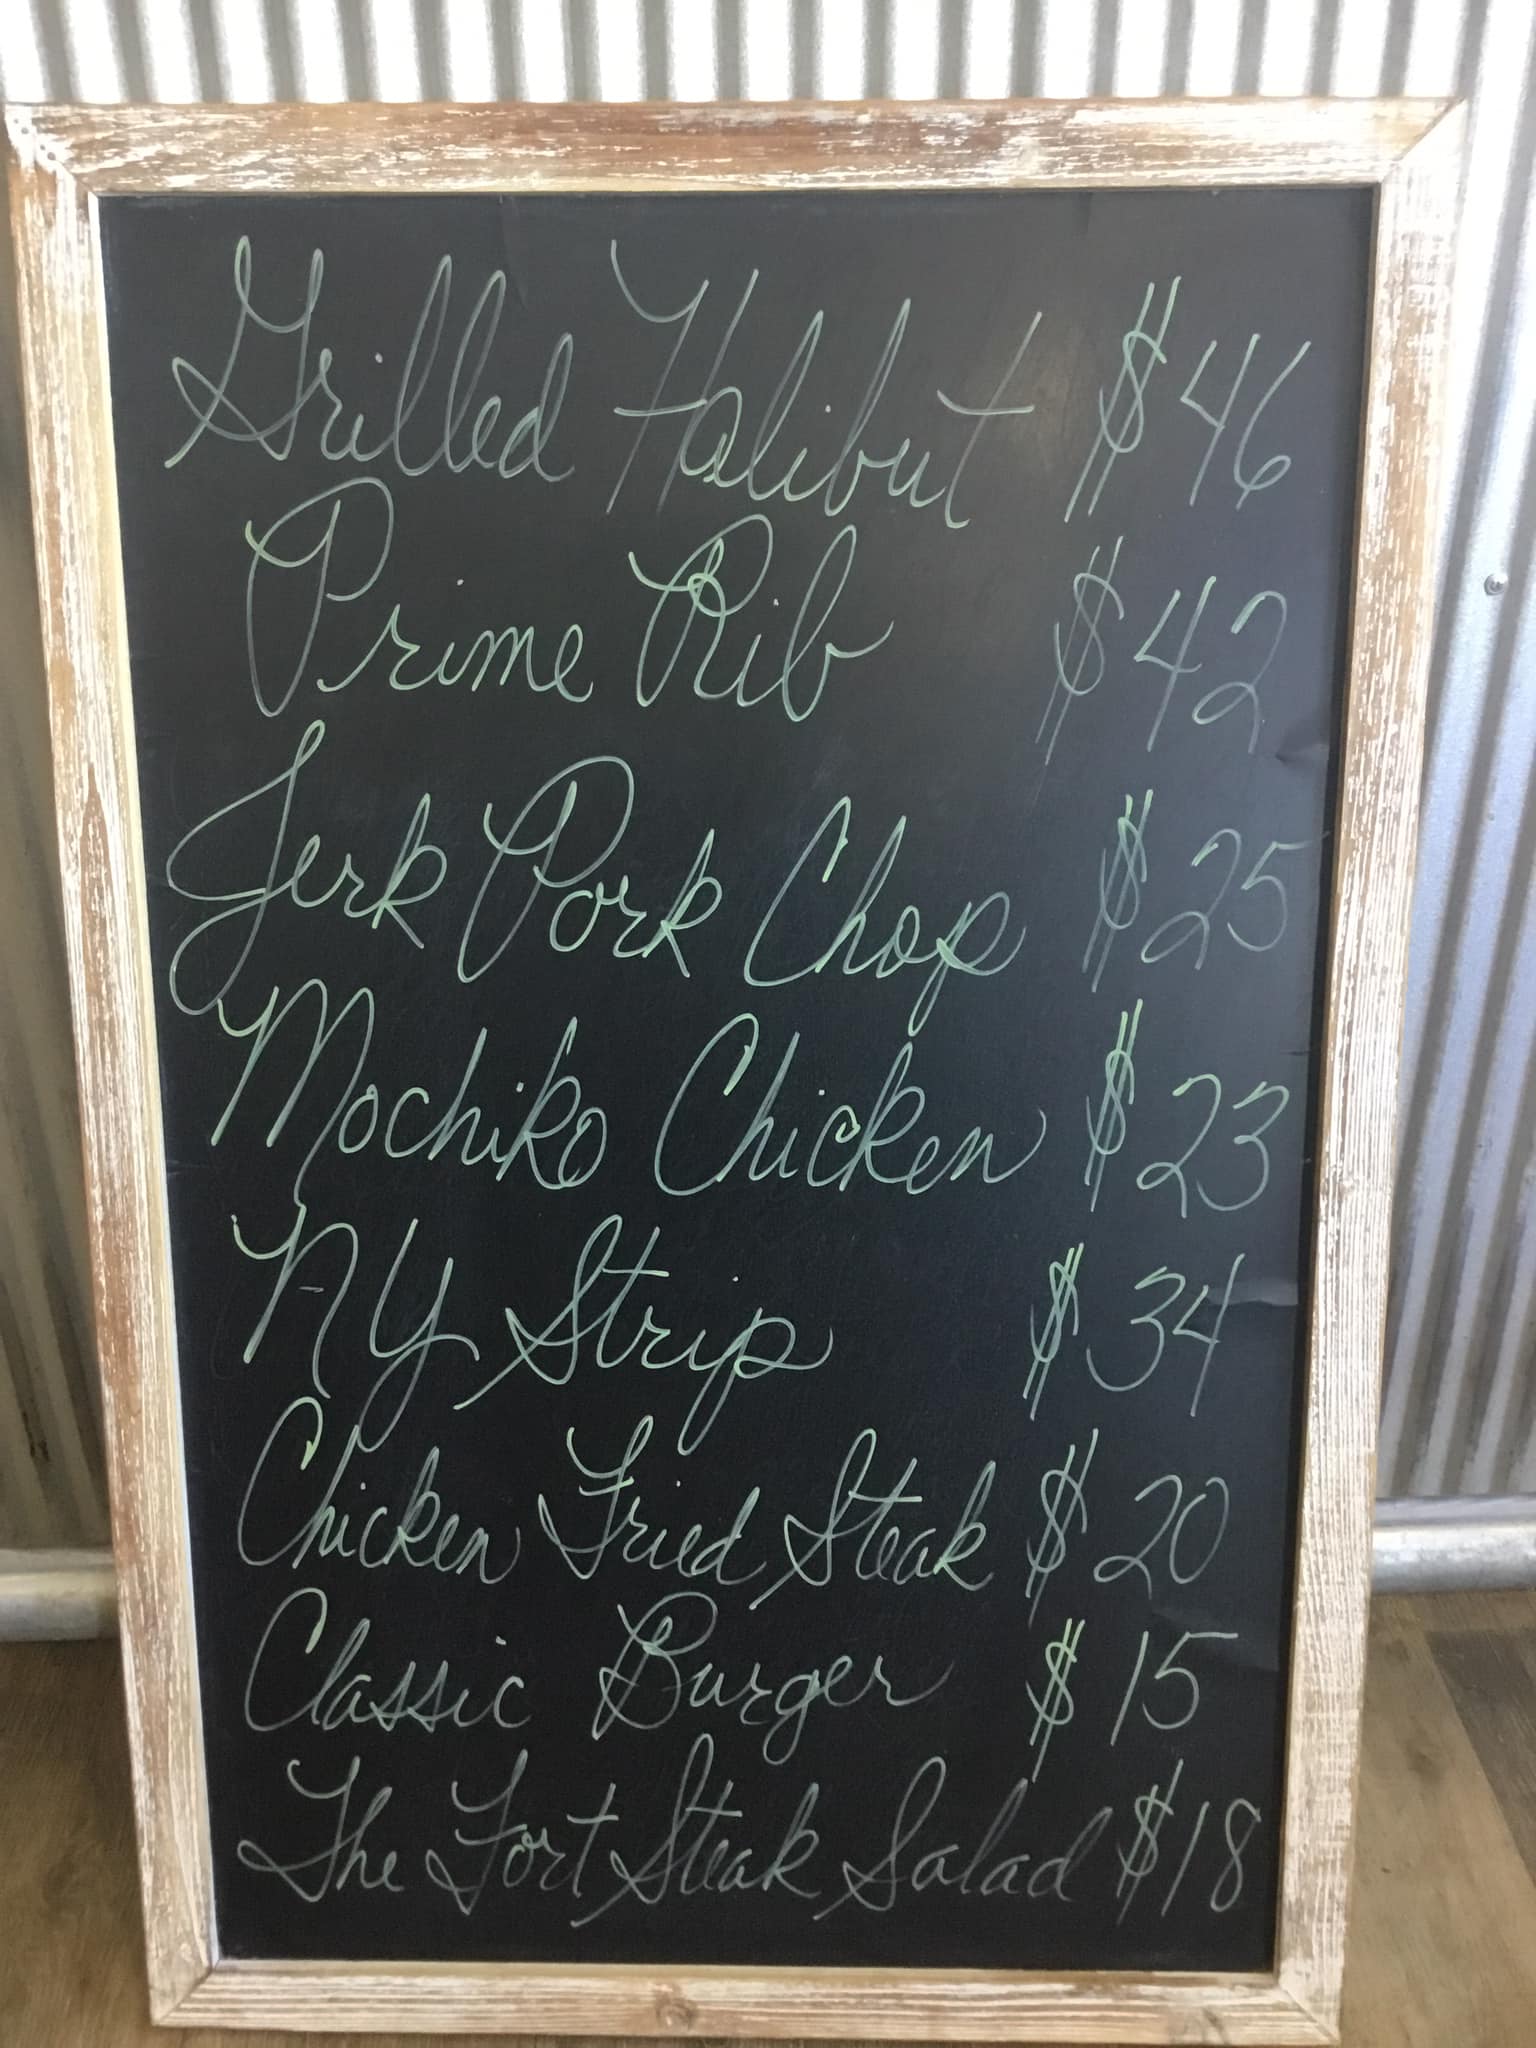 Grilled Halibut $46
Prime Rib $42
Jerk Pork Chop $25
Mochiko Chicken $23
NY Strip $34
Chicken Fried Steak $20
Classic Burger $15
The Fort Steak Salad $18